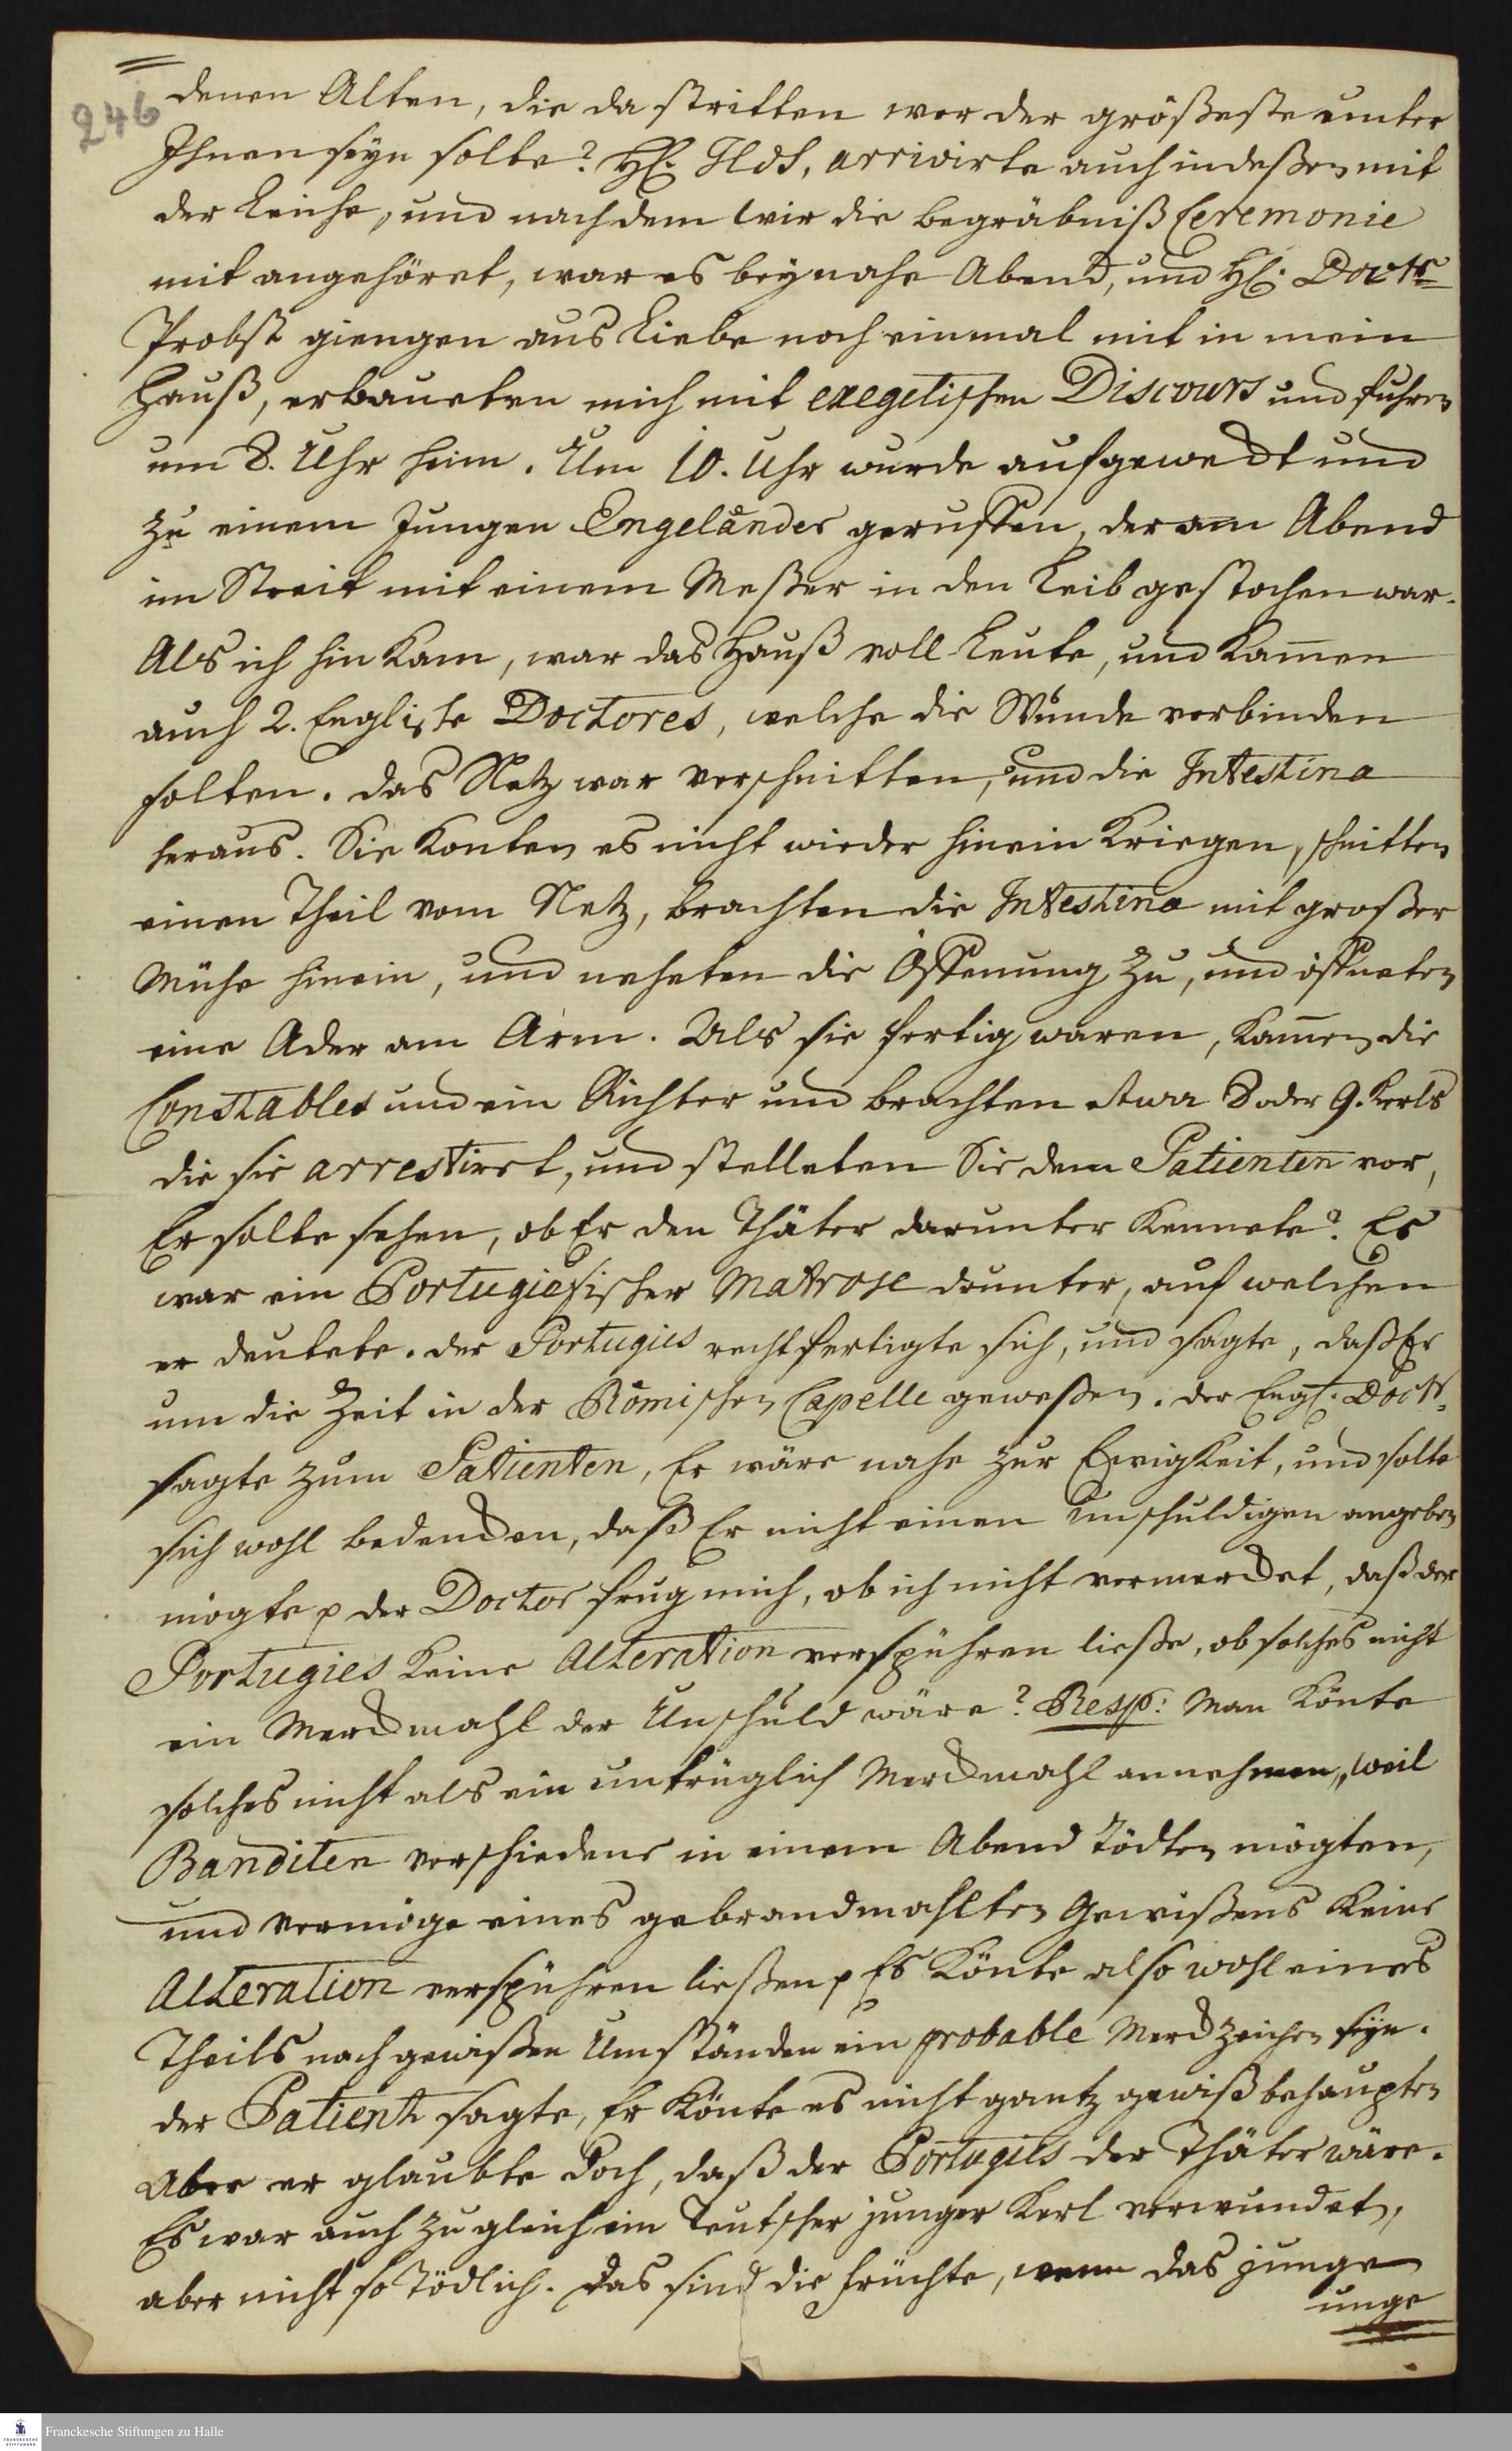 246
denen Alten, die da stritten wer der größeste unter
Ihnen seyn solte? H. Hdt, arrivirte auch indeßen mit
der Leiche, und nachdem wir die begräbniß Ceremonie
mit angehöret, war es beynahe Abend, und H. Doct.
Probst giengen aus Liebe noch einmal mit in mein
Hauß, erbaueten mich mit exegetischen Discours und fuhren
um 8. Uhr heim. Um 10. Uhr wurde aufgeweckt und
zu einem Jungen Engeländer geruffen, der am Abend
im Streit mit einem Meßer in den Leib gestochen war.
Als ich hin kam, war das Hauß voll Leute, und kamen
auch 2. Englische Doctores, welche die Wunde verbinden
solten. das Netz war verschnitten, und die Intestina
heraus. Sie konten es nicht wieder hinein kriegen, schnitten
einen Theil vom Netz, brachten die Intestina mit großer
Mühe hinein, und neheten die Öffenung zu, und öffneten
eine Ader am Arm. Als sie fertig waren, kamen die
Constables und ein Richter und brachten etwa 8 oder 9. Kerls
die sie arrestiret, und stelleten Sie dem Patienten vor,
Er solte sehen, ob Er den Thäter darunter kennete? Es
war ein Portugiesischer Matrose drunter, auf welchen
er deutete. der Portugies rechtfertigte sich, und sagte, daß Er
um die Zeit in der Römischen Capelle geweßen. der Engl. Doct.
sagte zum Patienten, Er wäre nahe zur Ewigkeit, und solte
sich wohl bedencken, daß Er nicht einen unschuldigen angeben
mögte p der Doctor frug mich, ob ich nicht vermercket, daß der
Portugies keine Alteration verspühren ließe, ob solches nicht
ein Merckmahl der Unschuld wäre? Resp: Man könte
solches nicht als ein untrüglich Merckmahl annehmen, weil
Banditen verschiedene in einem Abend tödten mögten,
und vermöge eines gebrandmahlten Gewißens keine
Alteration verspühren ließen p Es könte also wohl eines
Theils nach gewißen Umständen ein probable Merckzeichen seyn.
der Patient sagte, Er könte es nicht gantz gewiß behaupten
Aber er glaubte doch, daß der Portugies der Thäter wäre.
Es war auch zugleich ein Teutscher junger Kerl verwundet,
aber nicht so tödlich. Das sind die Früchte, wenn das junge
unge
Franckesche Stiftungen zu Halle
FRANCKESCHE
STIFTUNGEN